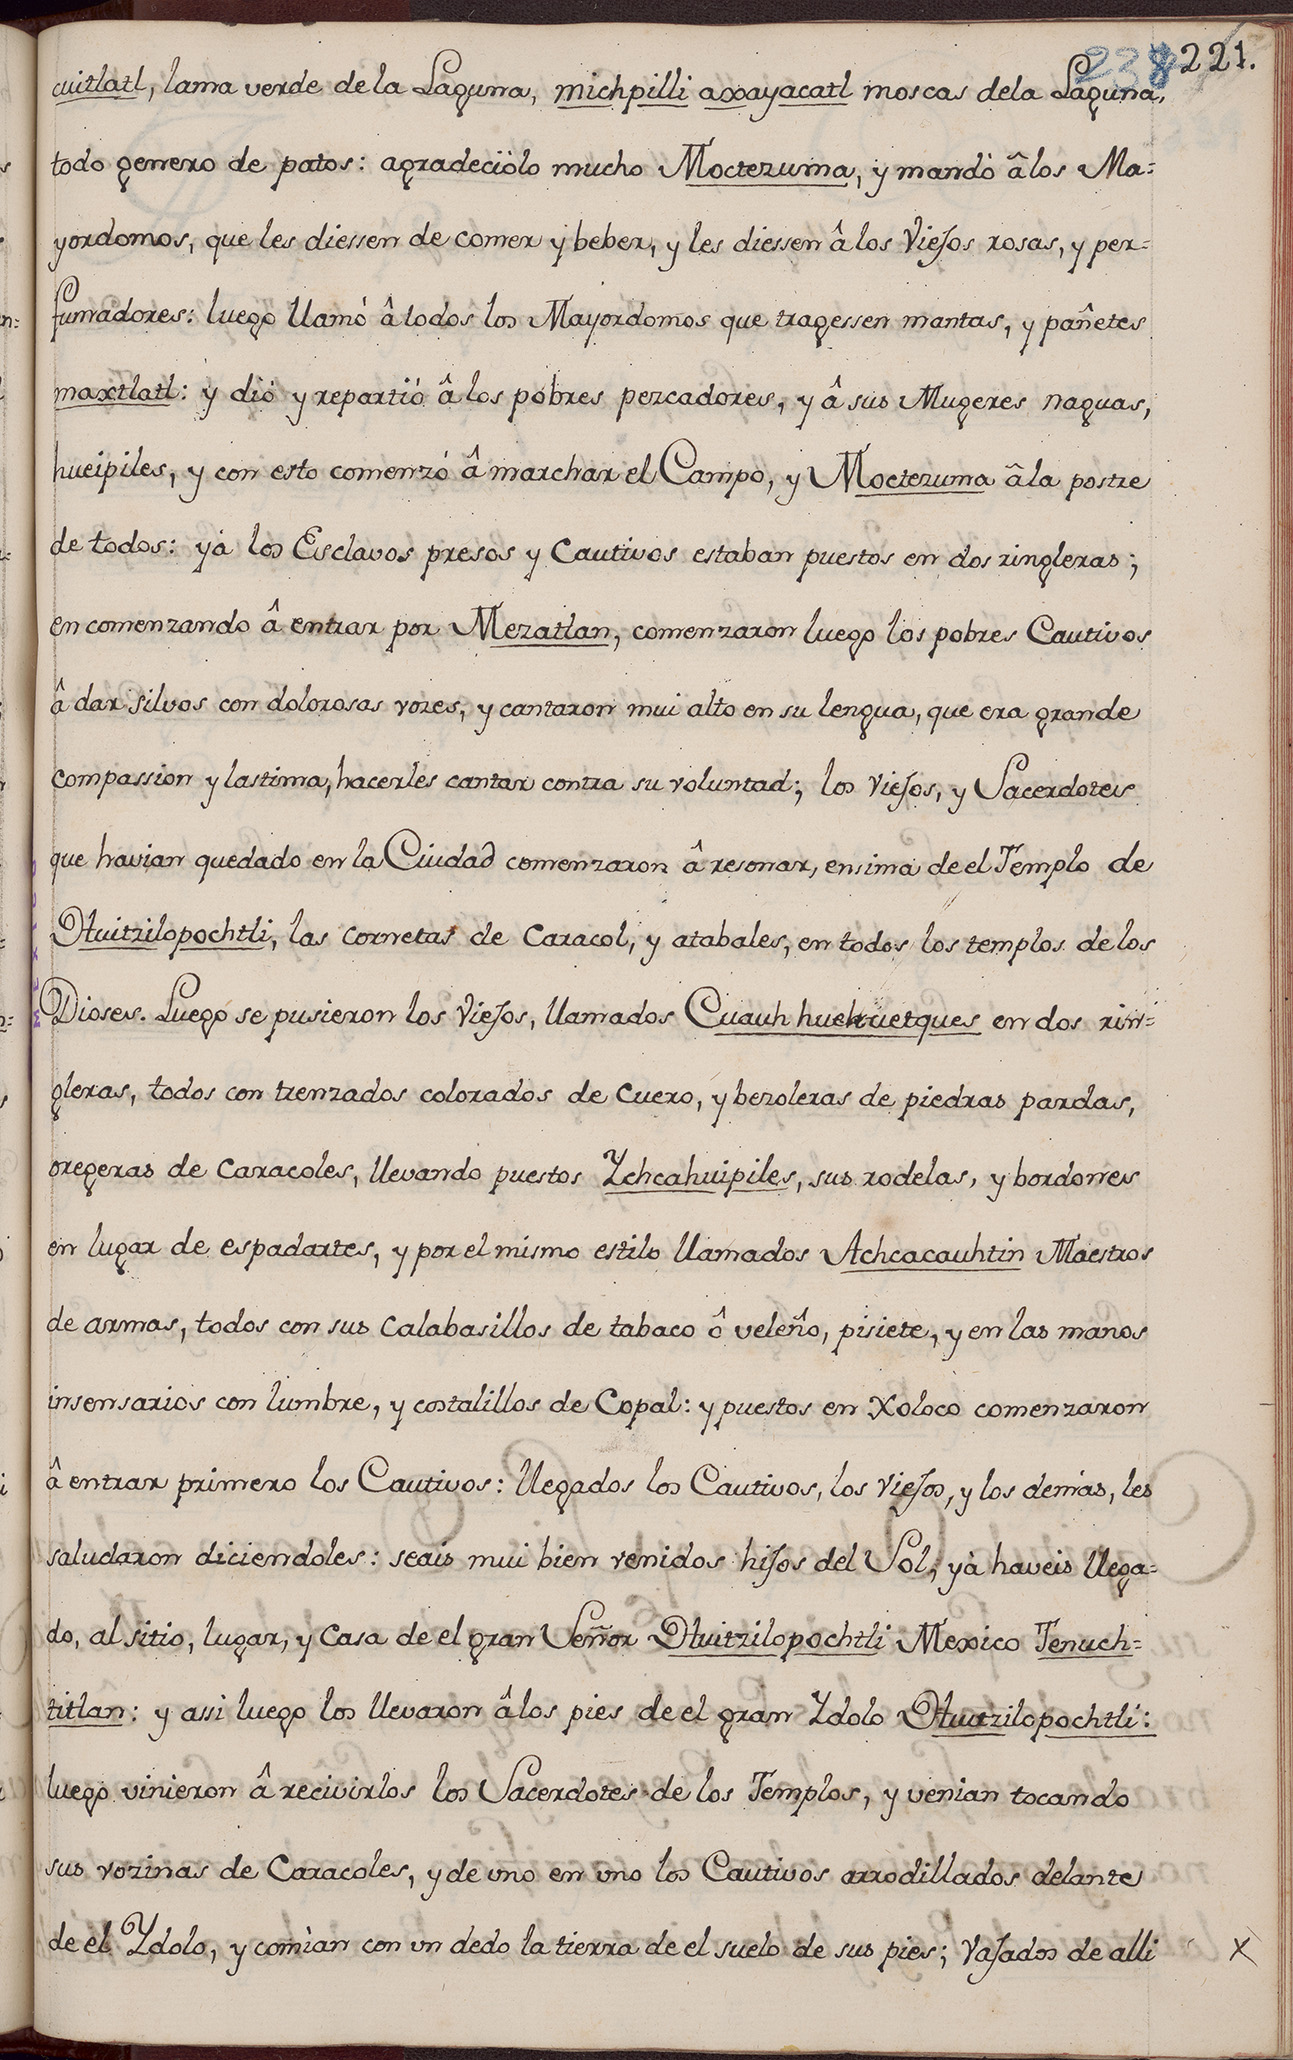 238 221.
cuitlatl, lama verde de la Laguna, michpilli axayacatl moscas dela Laguna,
todo genero de patos: agradeciòlo mucho Moctezuma, y mandò â los Ma=
yordomos, que les diessen de comer y beber, y les diessen â los Viejos rosas, y per=
fumadores: luego llamò â todos los Mayordomos que tragessen mantas, y pañetes
maxtlatl: y diò y repartiò â los pobres pezcadores, y â sus Mugeres naguas,
hueipiles, y con esto comenzò â marchar el Campo, y Moctezuma â la postre
de todos: yà los Esclavos presos y Cautivos estaban puestos en dos ringleras;
en comenzando â entrar por Mezatlan, comenzaron luego los pobres Cautivos
â dar silvos con dolorosas vozes, y cantaron mui alto en su lengua, que era grande
compassion y lastima, hacerles cantar contra su voluntad; los viejos, y Sacerdotes
que havian quedado en la Ciudad comenzaron â resonar, ensima de el Templo de
Huitzilopochtli, las cornetas de Caracol, y atabales, en todos los templos de los
Dioses. Luego se pusieron los Viejos, llamados Cuauh huehuetques en dos rin=
gleras, todos con trenzados colorados de Cuero, y bezoleras de piedras pardas,
oregeras de Caracoles, llevando puestos Ychcahuipiles, sus rodelas, y bordones
en lugar de espadartes, y por el mismo estilo llamados Achcacauhtin Maestros
de armas, todos con sus Calabasillos de tabaco ô veleño, pisiete, y en las manos
insensarios con lumbre, y costalillos de Copal: y puestos en Xoloco comenzaron
â entrar primero los Cautivos: llegados los Cautivos, los viejos, y los demàs, les
saludaron diciendoles: seais mui bien venidos hijos del Sol, yà haveis llega=
do, al sitio, lugar, y Casa de el gran Señor Huitzilopochtli Mexico Tenuch=
titlan: y assi luego los llevaron â los pies de el gran Ydolo Huitzilopochtli:
luego vinieron â recivirlos los Sacerdotes de los Templos, y venian tocando
sus vozinas de Caracoles, y de uno en uno los Cautivos arrodillados delante
de el Ydolo, y comìan con un dedo la tierra de el suelo de sus pies; Vajados de alli X